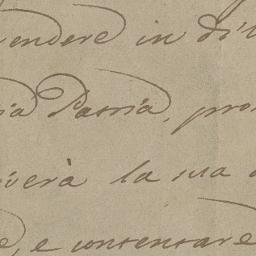 endere in di
ia Patria, pro
verà la sua
e, e conservare